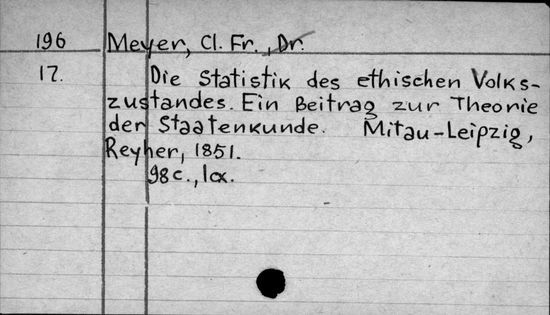 196 Meyer, Cl. Fr., Dr.
17. Die Statistik des ethischen Volks-
zustandes. Ein Beitrag zur Theorie
der Staatenkunde. Mitau-Leipzig,
Reyher, 1851.
98c.,